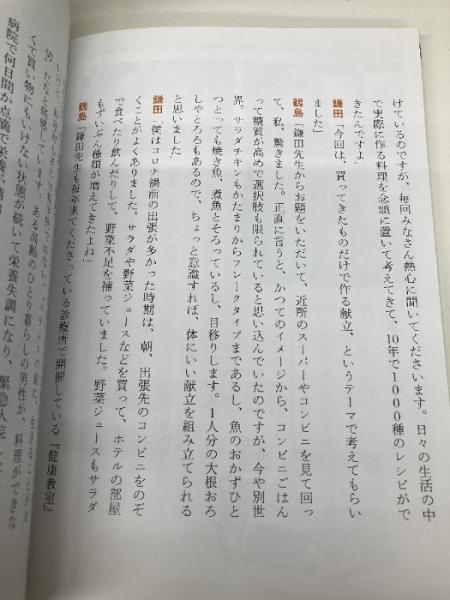 けているのですが、毎回みなさん熱心に聞いてくださいます。日々の生活の中
で実際に作る料理を念頭に置いて考えてきて、10年で1000種のレシピがで
きたんですよ」
鎌田「今回は、買ってきたものだけで作る献立、というテーマで考えてもらい
ました」
鶴島「鎌田先生からお題をいただいて、近所のスーパーやコンビニを見て回っ
て、私、驚きました。正直に言うと、かつてのイメージから、コンビニごはん
って糖質が高めで選択肢も限られていると思い込んでいたのですが、今や別世
界。サラダチキンもかたまりからフレークタイプまであるし、魚のおかずひと
つとっても焼き魚、煮魚とそろっているし、目移りします。1人分の大根おろ
しやとろろもあるので、ちょっと意識すれば、体にいい献立を組み立てられる
と思いました」
鎌田「僕はコロナ禍前の出張が多かった時期は、朝、出張先のコンビニをのぞ
くことがよくありました。サラダや野菜ジュースなどを買って、ホテルの部屋
で食べたり飲んだりして、野菜不足を補っていました。野菜ジュースもサラダ
もずいぶん種類が増えてきたよね」
鶴島「鎌田先生も毎年来てくださっている診療所で開催している『健康教室』
ある高齢のひとり暮らしの男性が、料理ができな
くて買い物にもいけない状態が続いて栄養失調になり、緊急入院
病院で何日間か点滴で栄養を補